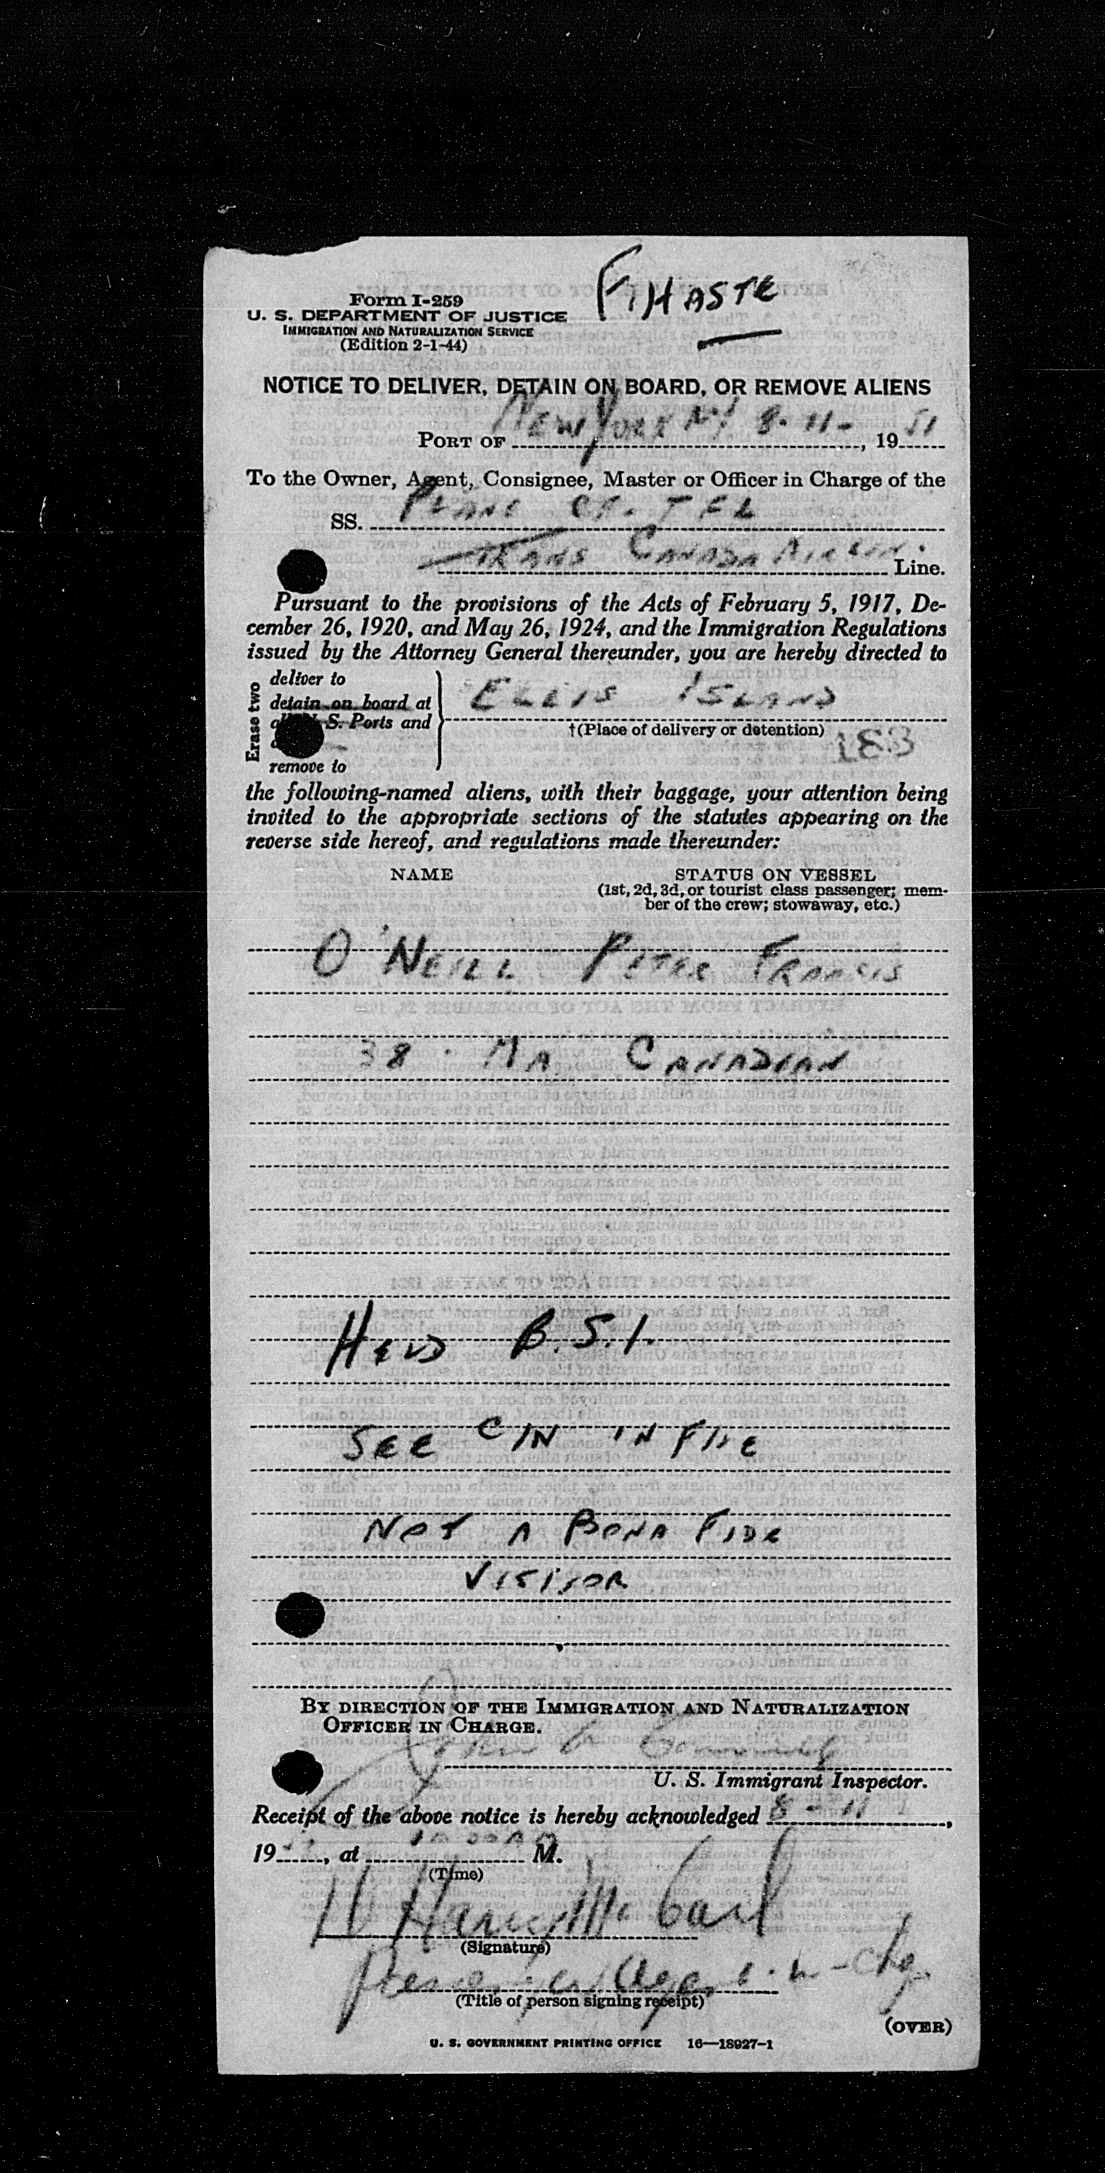 Form I-259
U. S. DEPARTMENT OF JUSTICE
IMMIGRATION AND NATURALIZATION SERVICE
(Edition 2-1-44)
NOTICE TO DELIVER, DETAIN ON BOARD, OR REMOVE ALIENS
PORT OF New York NY 8-11-, 19 51
To the Owner, Agent, Consignee, Master or Officer in Charge of the
SS. PLANE CF-TFL
TRANS CANADA AIRLIN. Line.
Pursuant to the provisions of the Acts of February 5, 1917, De-
cember 26, 1920, and May 26, 1924, and the Immigration Regulations
issued by the Attorney General thereunder, you are hereby directed to
Erase two
deliver to
detain on board at
S. Ports and
remove to
ELLIS ISLAND
†(Place of delivery or detention)
183
the following-named aliens, with their baggage, your attention being
invited to the appropriate sections of the statutes appearing on the
reverse side hereof, and regulations made thereunder:
NAME STATUS ON VESSEL
(1st, 2d, 3d, or tourist class passenger; mem-
ber of the crew; stowaway, etc.)
O'NEILL PETER FRANCIS
38 · MA CANADIAN
HELD B.S.I.
SEE C/N IN FILE
NOT A BONA FIDE
VISITOR
BY DIRECTION OF THE IMMIGRATION AND NATURALIZATION
OFFICER IN CHARGE.
U. S. Immigrant Inspector.
Receipt of the above notice is hereby acknowledged 8-11,
19, at M.
(Time)
(Signature)
(Title of person signing receipt)
(OVER)
U. S. GOVERNMENT PRINTING OFFICE 16—18927-1